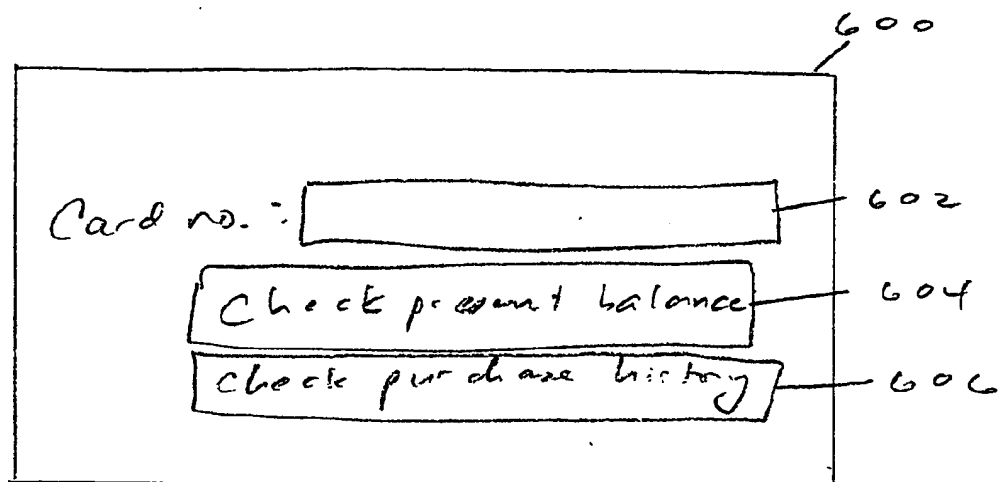 600
Card no. :
602
Check present balance
604
check purchase history
606